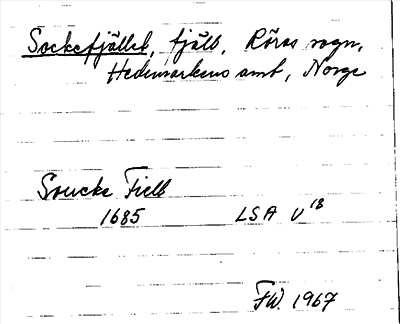 Sockefjället, fjäll, Röros sogn,
Hedemarkens amt, Norge
Soucke Fiell
1685 LSA V 18
FW. 1967